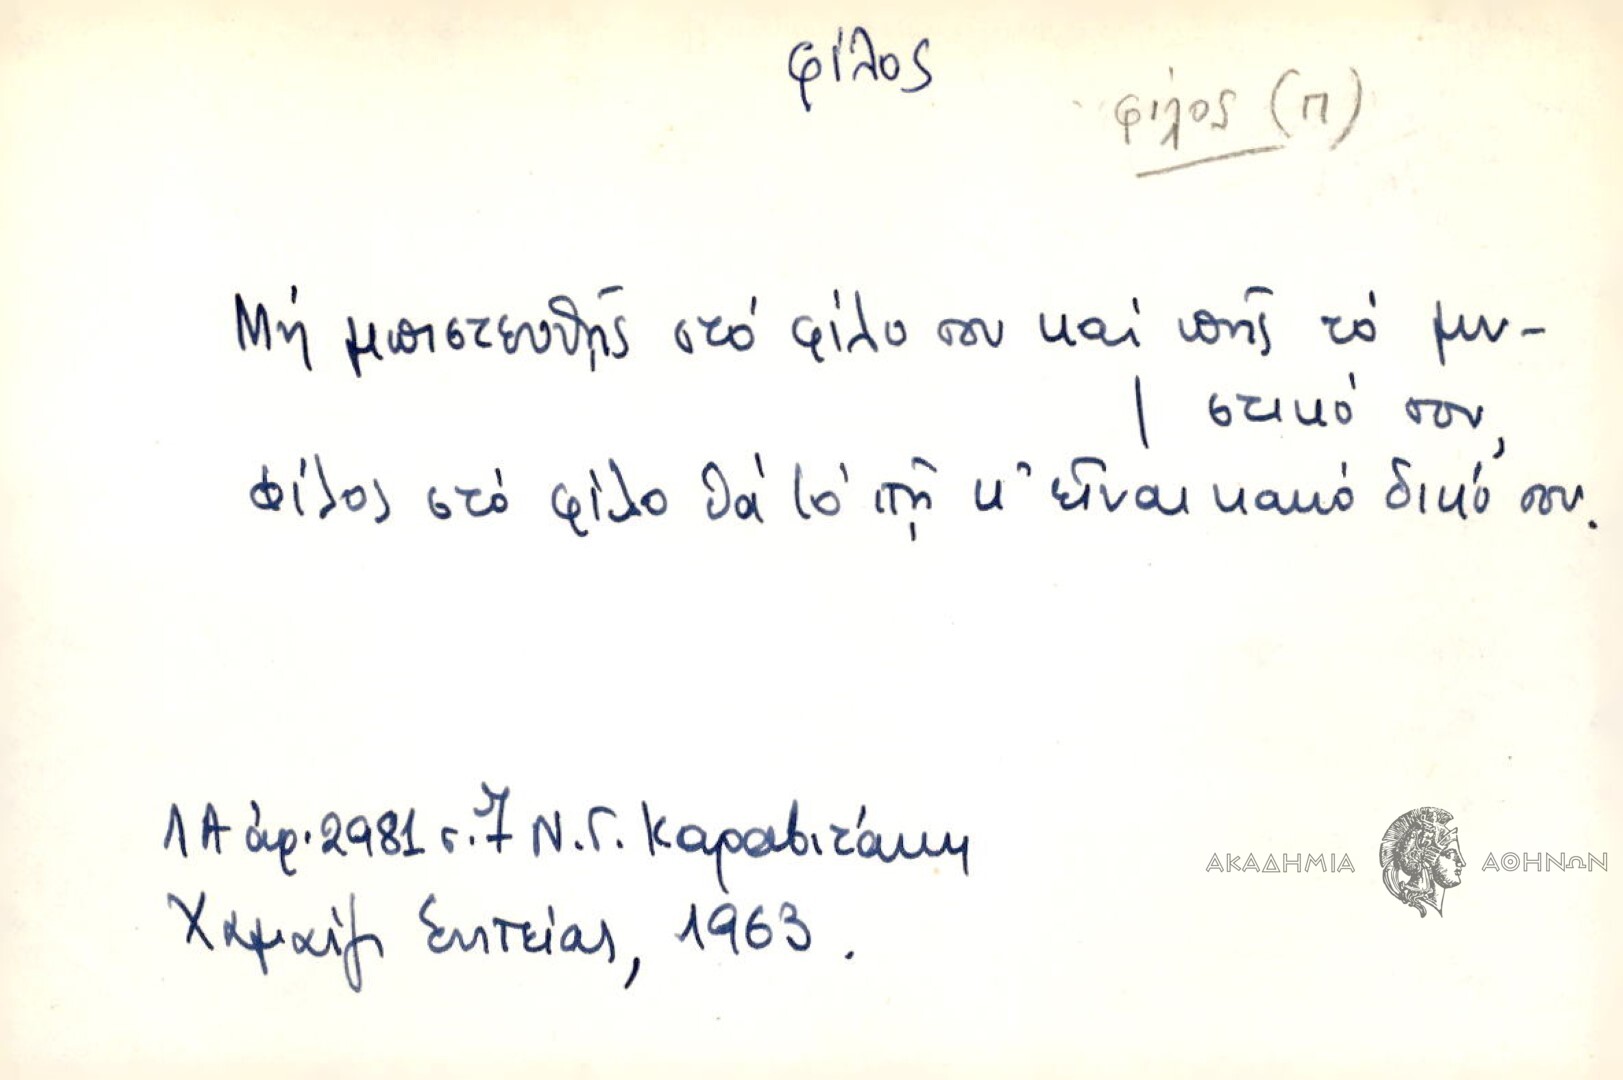 φίλος
φίλος (π)
Μή μπιστευθῇς στό φίλο σου καί πῇς τό μυ-
στικό σου,
Φίλος στό φίλο θά τό πῇ κ' εἶναι κακό δικό σου.
ΛΑ ἀρ. 2981 σ. 7 Ν. Γ. Καραβιτάκη
Χαμαίζι Σητείας, 1963.
ΑΚΑΔΗΜΙΑ ΑΘΗΝΩΝ